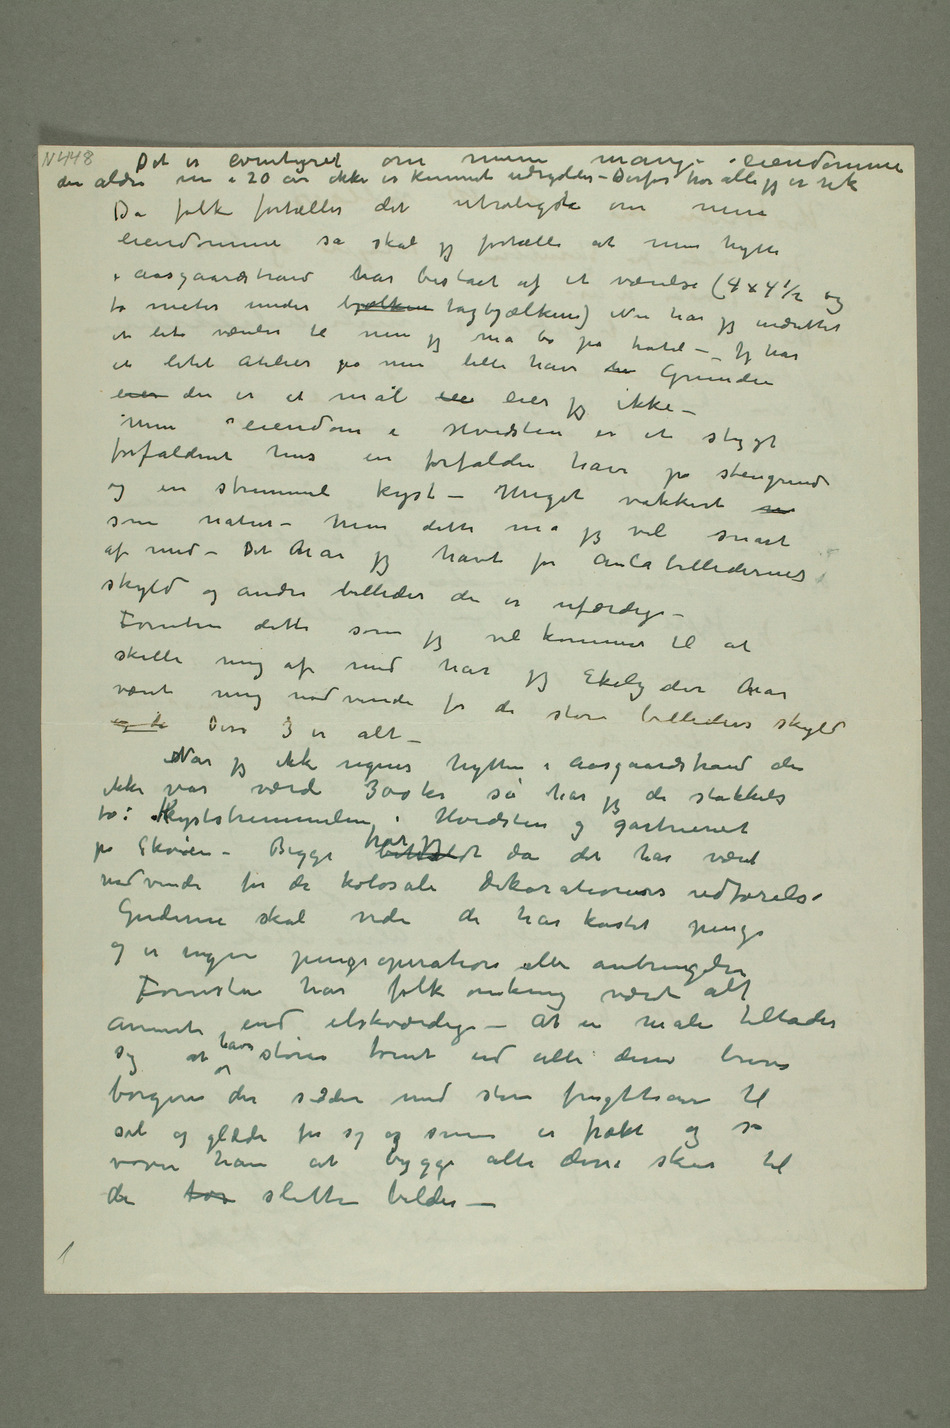 N 448
Det er eventyret om mine mange eiendomme
der aldri nu i 20 år ikke er kunnet udryddes – Derfor tror alle jeg er rik
Da folk fortæller det utroligste om mine
eiendomme så skal jeg fortælle at min hytte
i Aasgaardstrand har bestået af et værelse (4 x 4 1/2 og
to meter under bjælken tagbjælkene) Nu har jeg indrettet
et lite værelse til men jeg må bo på hotel – Jeg har
et litet atelier på min lille have Grunden
eier der er et mål eier jeg ikke –
Min eiendom i Hvidsten er et stygt
forfaldent hus en forfalden have på stengrund
og en strimmel kyst – Meget vakkert
som natur – Men dette må jeg vel snart
af med – Det har jeg havt for Aulabilledernes
skyld og andre billeder der er uferdige –
Foruten dette som jeg vel kommer til at
skille mig af med har jeg Ekely der har
været mig nødvendig for de store billeders skyld
og de Disse 3 er alt –
Når jeg ikke regner hytten i Aasgaardstrand der
ikke var værd 300 kr så har jeg de stakkels
to: Kyststrimmelen i Hvidsten og gartneriet
på Skøien – Begge har jeg beholdt da det har været
nødvendig for de kolosale dekorationers udførelse
Guderne skal vide de har kostet penge
og er ingen pengeoperation eller anbringelse
Forresten har folk omkring været alt
annet end elskværdige – At en maler tillader
sig at have større tomt end alle disse brave
borgere der sidder med store frugthaver til
sol og glæde for sig og sine er frækt og så
vover han at bygge alle disse skur til
de tos slette bilder –
1